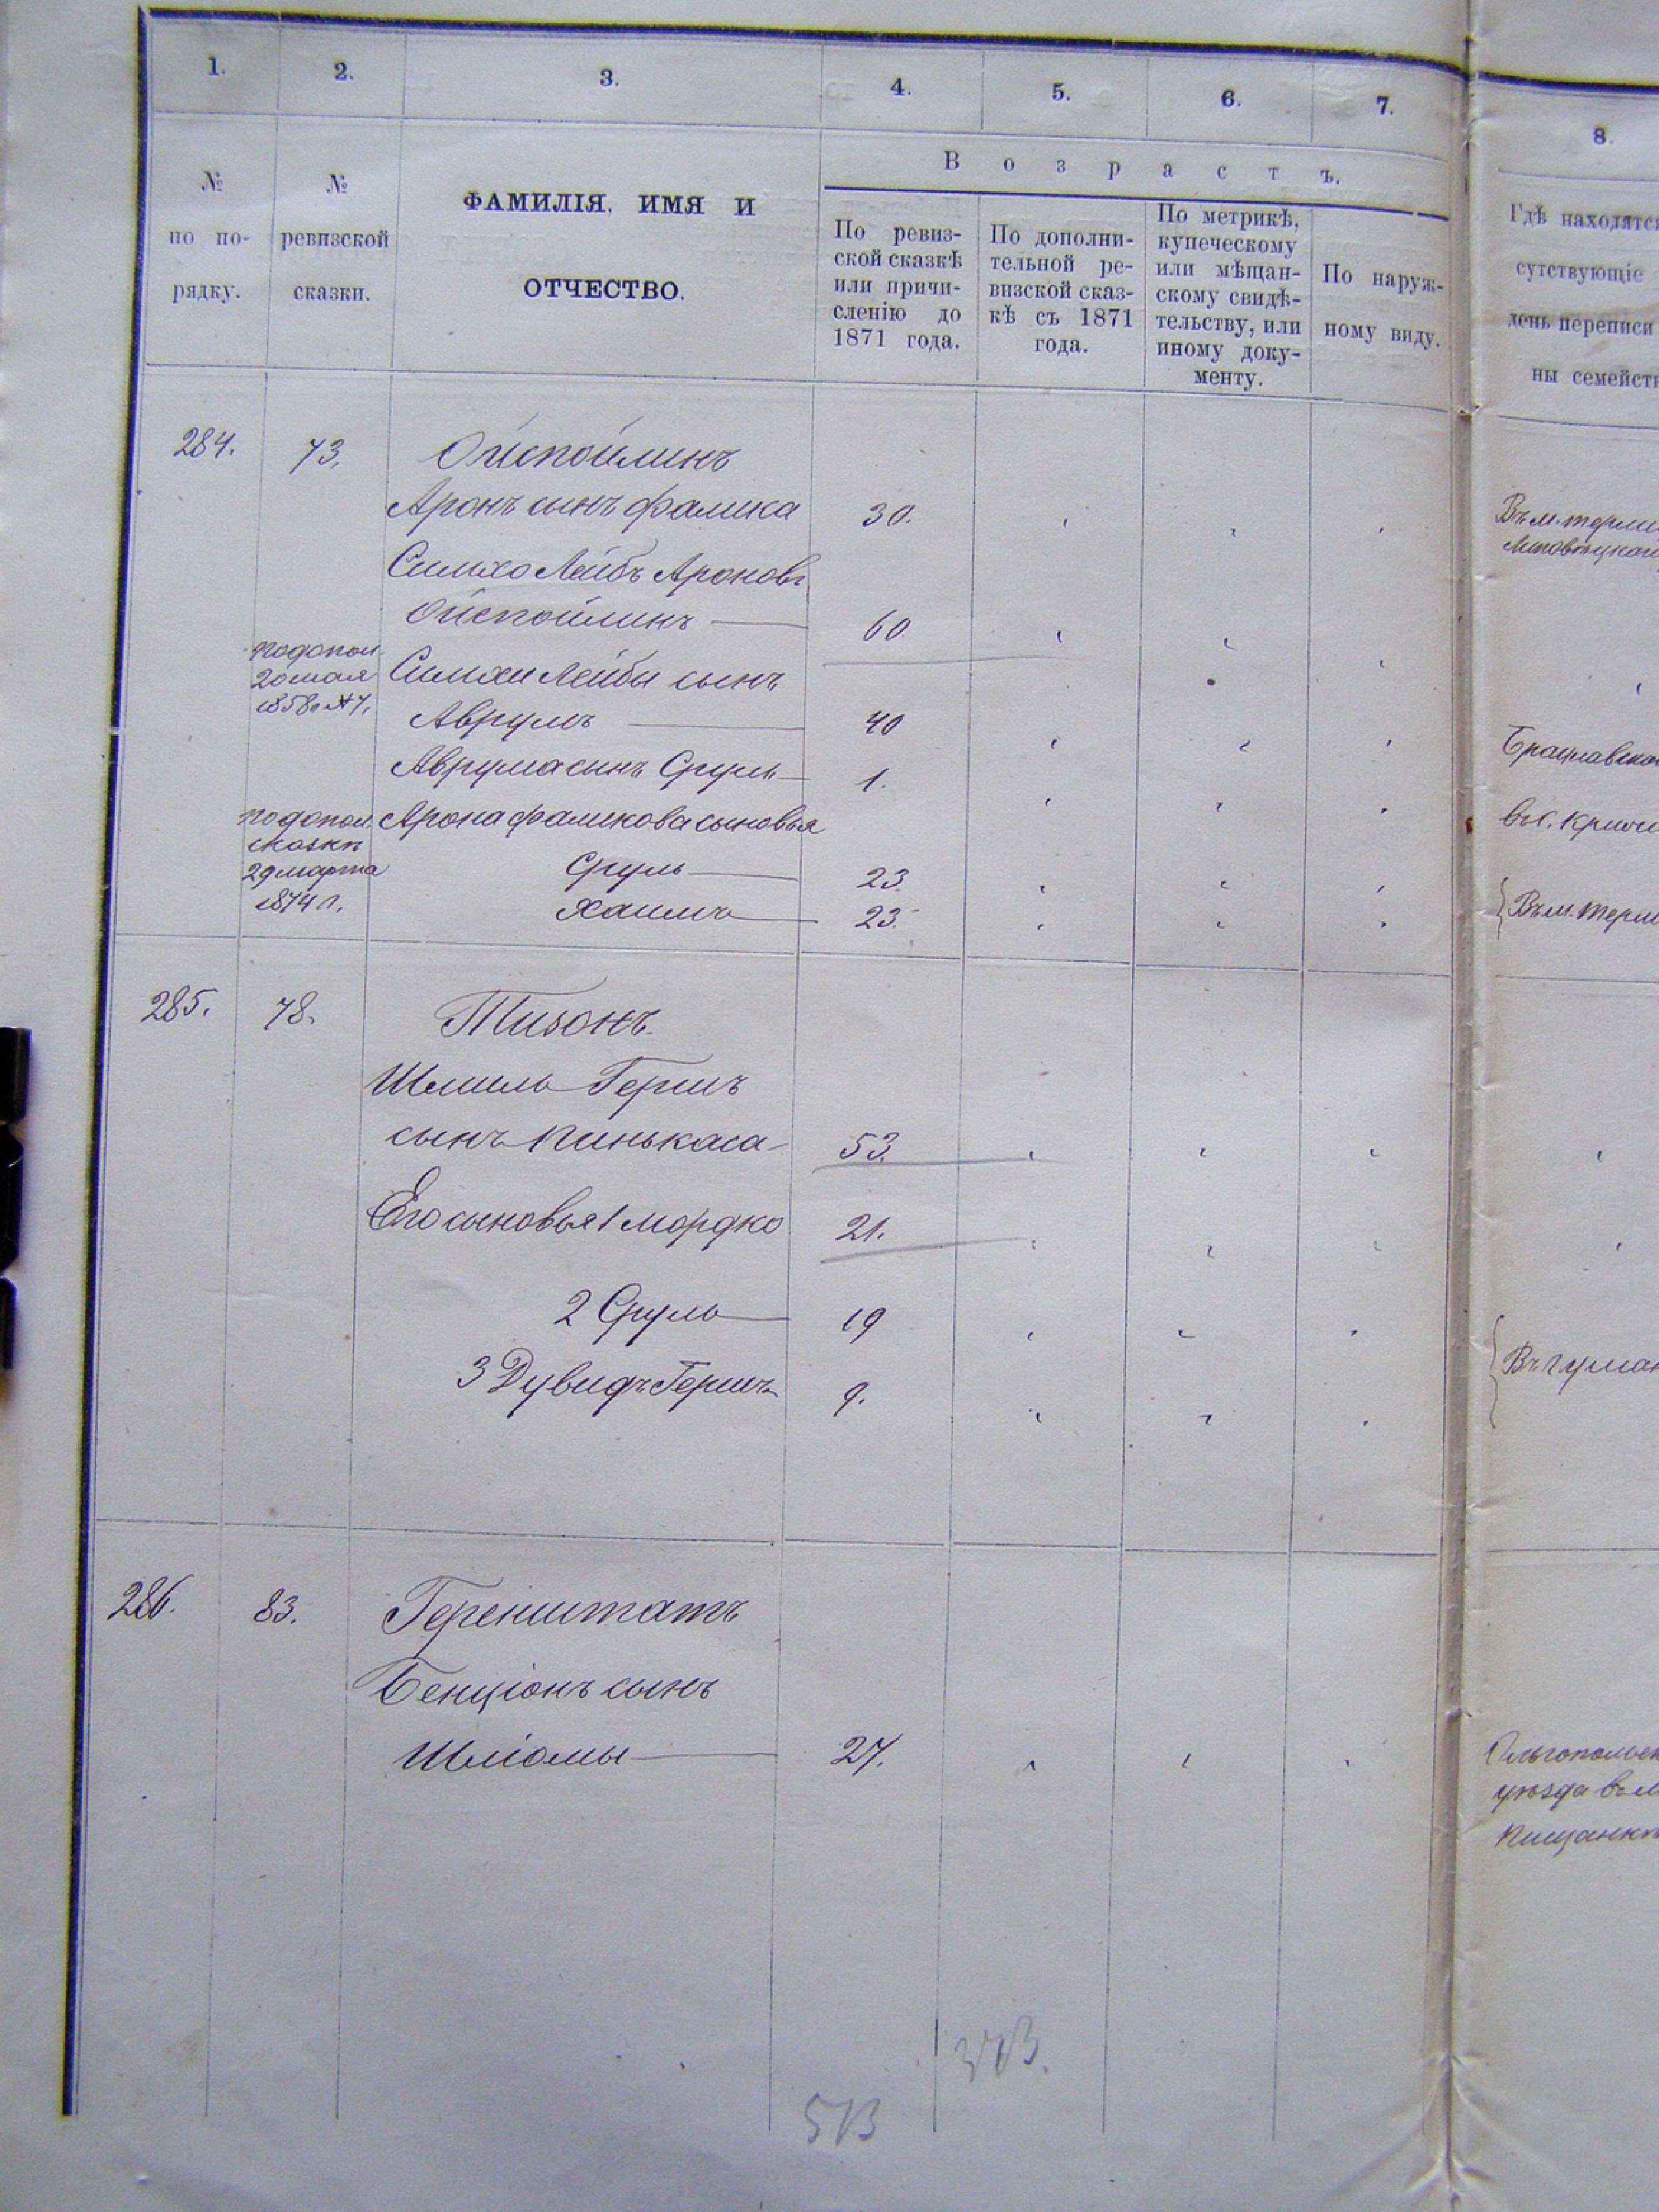 1. 2. 3. 4. 5. 6. 7. 8.
В о з р а с т ъ.
№ по по- рядку.
№ ревизской сказки.
ФАМИЛІЯ, ИМЯ И
ОТЧЕСТВО.
По ревиз-
ской сказкѣ
или причи-
сленію до
1871 года.
По дополни-
тельной ре-
визской сказ-
кѣ съ 1871
года.
По метрикѣ,
купеческому
или мѣщан-
скому свидѣ-
тельству, или
иному доку-
менту.
По наруж-
ному виду.
Гдѣ находятся
сутствующіе
день переписи
ны семейств
284. 73. Ойспойлинъ
Аронъ сынъ Фалика 30. Въ м. терли
Липовецкаго
Симхо Лейбъ Аронов
Ойспойлинъ 60
по допол. 20 мая 1858 г. №7. Симхи Лейбы сынъ
Аврумъ 40 Брацлавско
Аврума сынъ Сруль 1. въ с.
по допол. сказкѣ 29 марта 1874 г. Арона Фаликова сыновья
Сруль 23.
Хаимъ 23. Въ м. терли
285. 78. Тизонъ
Шмиль Гершъ
сынъ Пинькаса 53.
Его сыновья 1 Мордко 21.
2 Сруль 19
3 Дувидъ Гершъ 9. Въ г уман
286. 83. Геренштатъ
Бенціонъ сынъ
Шліомы 27. Ольгопольск
уѣзда въ м
Пищанкѣ
373.
513